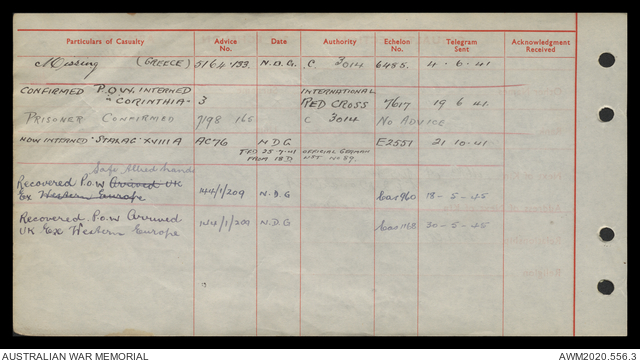 Particulars of Casualty Advice No. Date Authority Echelon No. Telegram Sent Acknowledgment Received
Missing (GREECE) 5164.133 N.D.G. C 3014 6485. 4.6.41
CONFIRMED P.O.W. INTERNED INTERNATIONAL
"CORINTHIA" 3 RED CROSS 7617 19 6 41.
PRISONER CONFIRMED 7198 165 C 3014 NO ADVICE
NOW INTERNED "STALAG" XVIII A AC 76 N D G OFFICIAL GERMAN E2551 21.10.41
TFD 25.7.41 NFT NO 59.
FROM 18D
Safe Allied hands
Recovered P.o.W Arrived UK 144/1/209 N.D.G Cas960 18-5-45
Ex Western Europe
Recovered P.o.W Arrived 144/1/209 N.D.G Cas1168 30-5-45
UK Ex Western Europe
AUSTRALIAN WAR MEMORIAL AWM2020.556.3